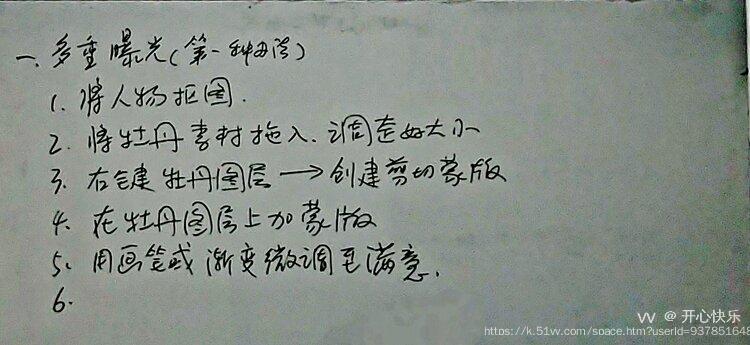 一、多重曝光(第一种方法)
1. 将人物抠图.
2. 将牡丹素材拖入.调整好大小
3. 右键牡丹图层→创建剪切蒙版
4. 在牡丹图层上加蒙版
5. 用画笔或渐变微调至满意.
6.
VV @ 开心快乐
https://k.51vv.com/space.htm?userId=937851648